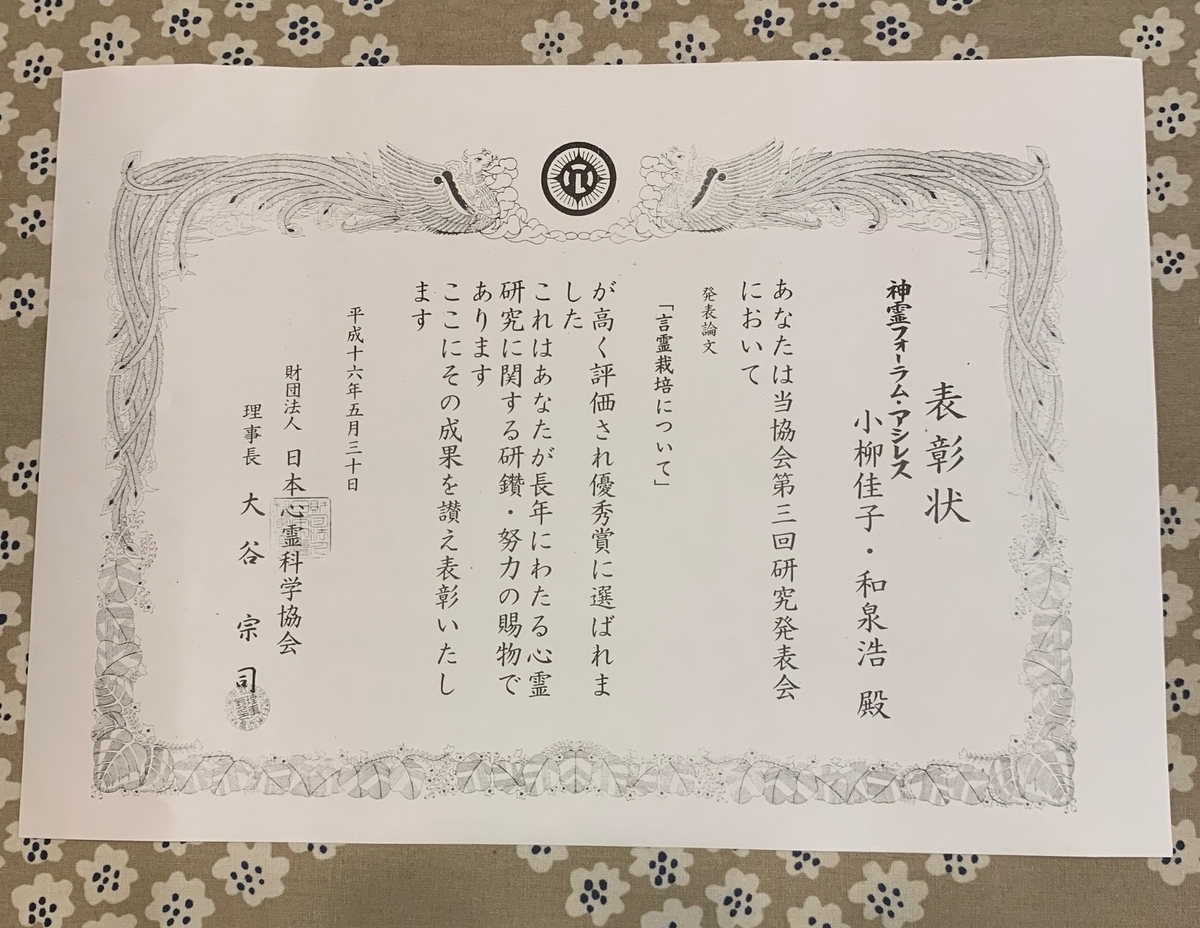 表彰状
神霊フォーラム・アシレス
小柳佳子・和泉浩 殿
あなたは当協会第三回研究発表会
において
発表論文
「言霊栽培について」
が高く評価され優秀賞に選ばれま
した
これはあなたが長年にわたる心霊
研究に関する研鑽・努力の賜物で
あります
ここにその成果を讃え表彰いたし
ます
平成十六年五月三十日
財団法人 日本心霊科学協会
理事長 大谷宗司